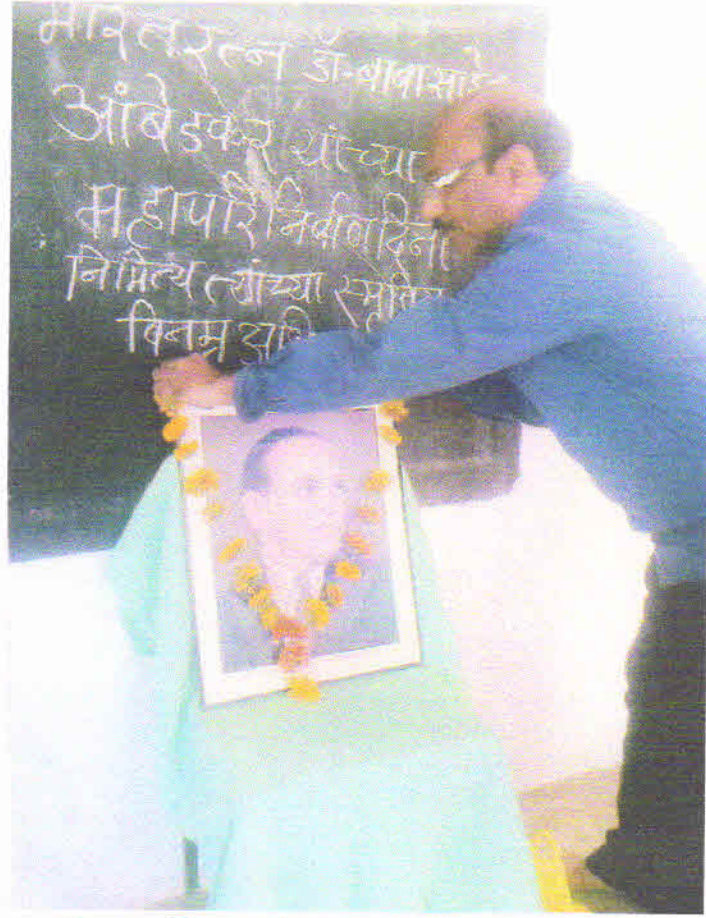 भारतरत्न डॉ. बाबासाहे
आंबेडकर यांच्या
महापरिनिर्वाणदिना
निमित्य त्यांच्या स्मृति
विनम्र अभि